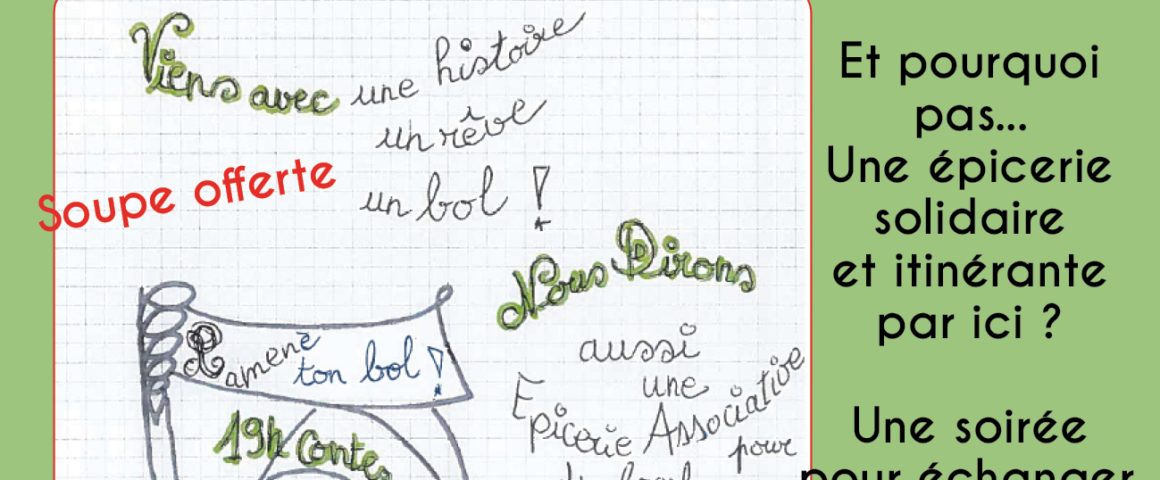 Viens avec une histoire
un rêve
un bol !
Soupe offerte
Nous Dirons
aussi
une
Epicerie Associative
pour
Ramène
ton bol !
19h Contes
Et pourquoi
pas...
Une épicerie
solidaire
et itinérante
par ici ?
Une soirée
pour échanger